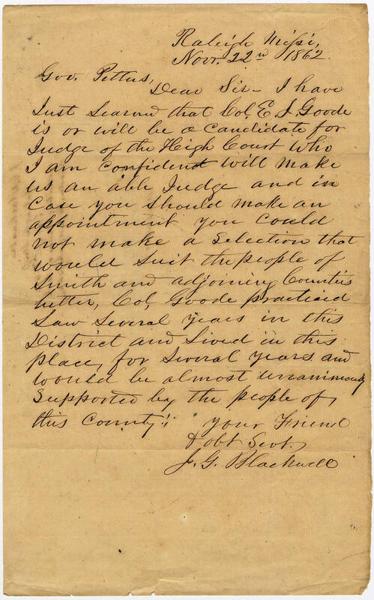 Raleigh Missi,
Novr. 22nd 1862
Gov. Pettus,
Dear Sir - I have
Just Learned that Col, E J. Goode
is or will be a Candidate for
Judge of the High Court Who
I am confident will make
us an able Judge and in
Case you should make an
appointment you could
not make a Selection that
would suit the people of
Smith and adjoining Counties
better, Col, Goode practiced
Law Several years in this
District and Lived in this
place, for Several years and
would be almost unanimously
Supported by the people of
this County.
Your Friend
& obt Servt.
J. G. Blackwell